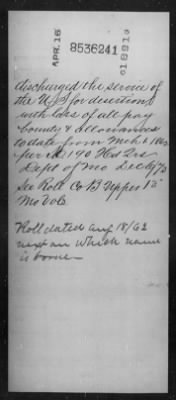 APR. 16
8536241
1881
discharged the service of
the U.S. for desertion
with loss of all pay
bounty & allowances
to date from Mch 6 1865
per S.O. 190 Hd Qrs
Dept of Mo Dec 6/75
See Roll Co B Upper 1st
Mo Vols
Roll dated Aug 18/62
next on which name
is borne